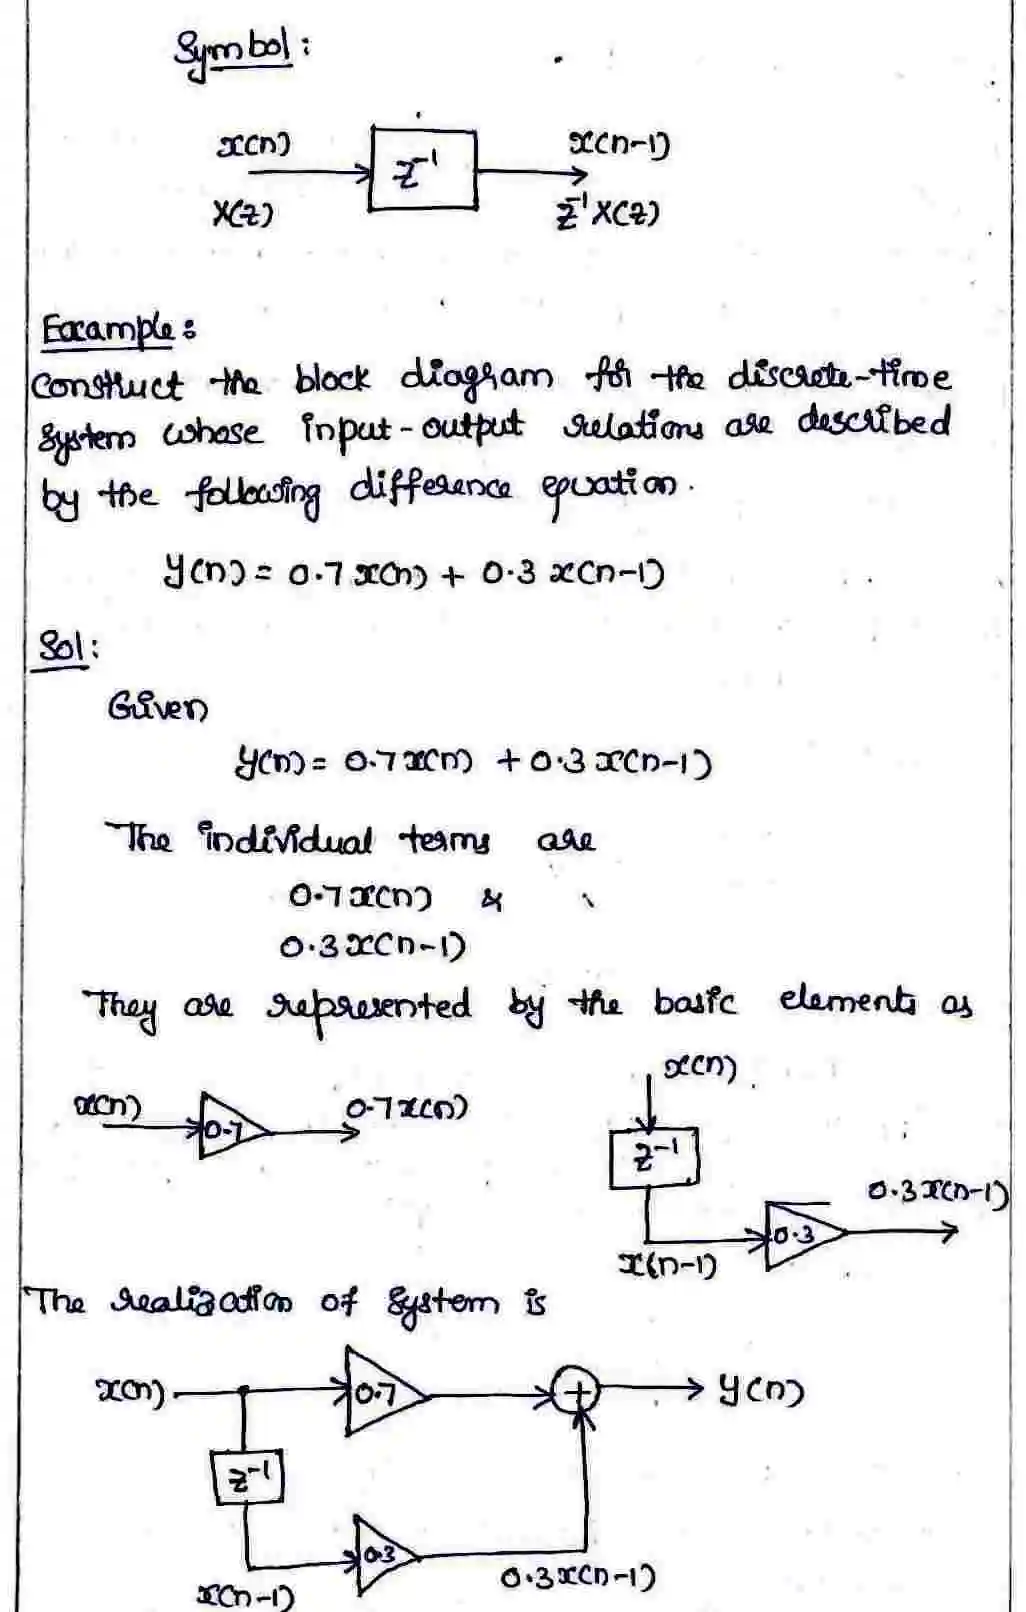 Symbol:
x(n)
z⁻¹
x(n-1)
X(z)
z⁻¹X(z)
Example:
Construct the block diagram for the discrete-time
System whose input-output relations are described
by the following difference equation.
y(n) = 0.7 x(n) + 0.3 x(n-1)
Sol:
Given
y(n) = 0.7 x(n) + 0.3 x(n-1)
The individual terms are
0.7 x(n) &
0.3 x(n-1)
They are represented by the basic elements as
x(n)
x(n)
0.7
0.7 x(n)
z⁻¹
0.3 x(n-1)
0.3
x(n-1)
The realization of System is
x(n)
0.7
+
y(n)
z⁻¹
0.3
0.3 x(n-1)
x(n-1)